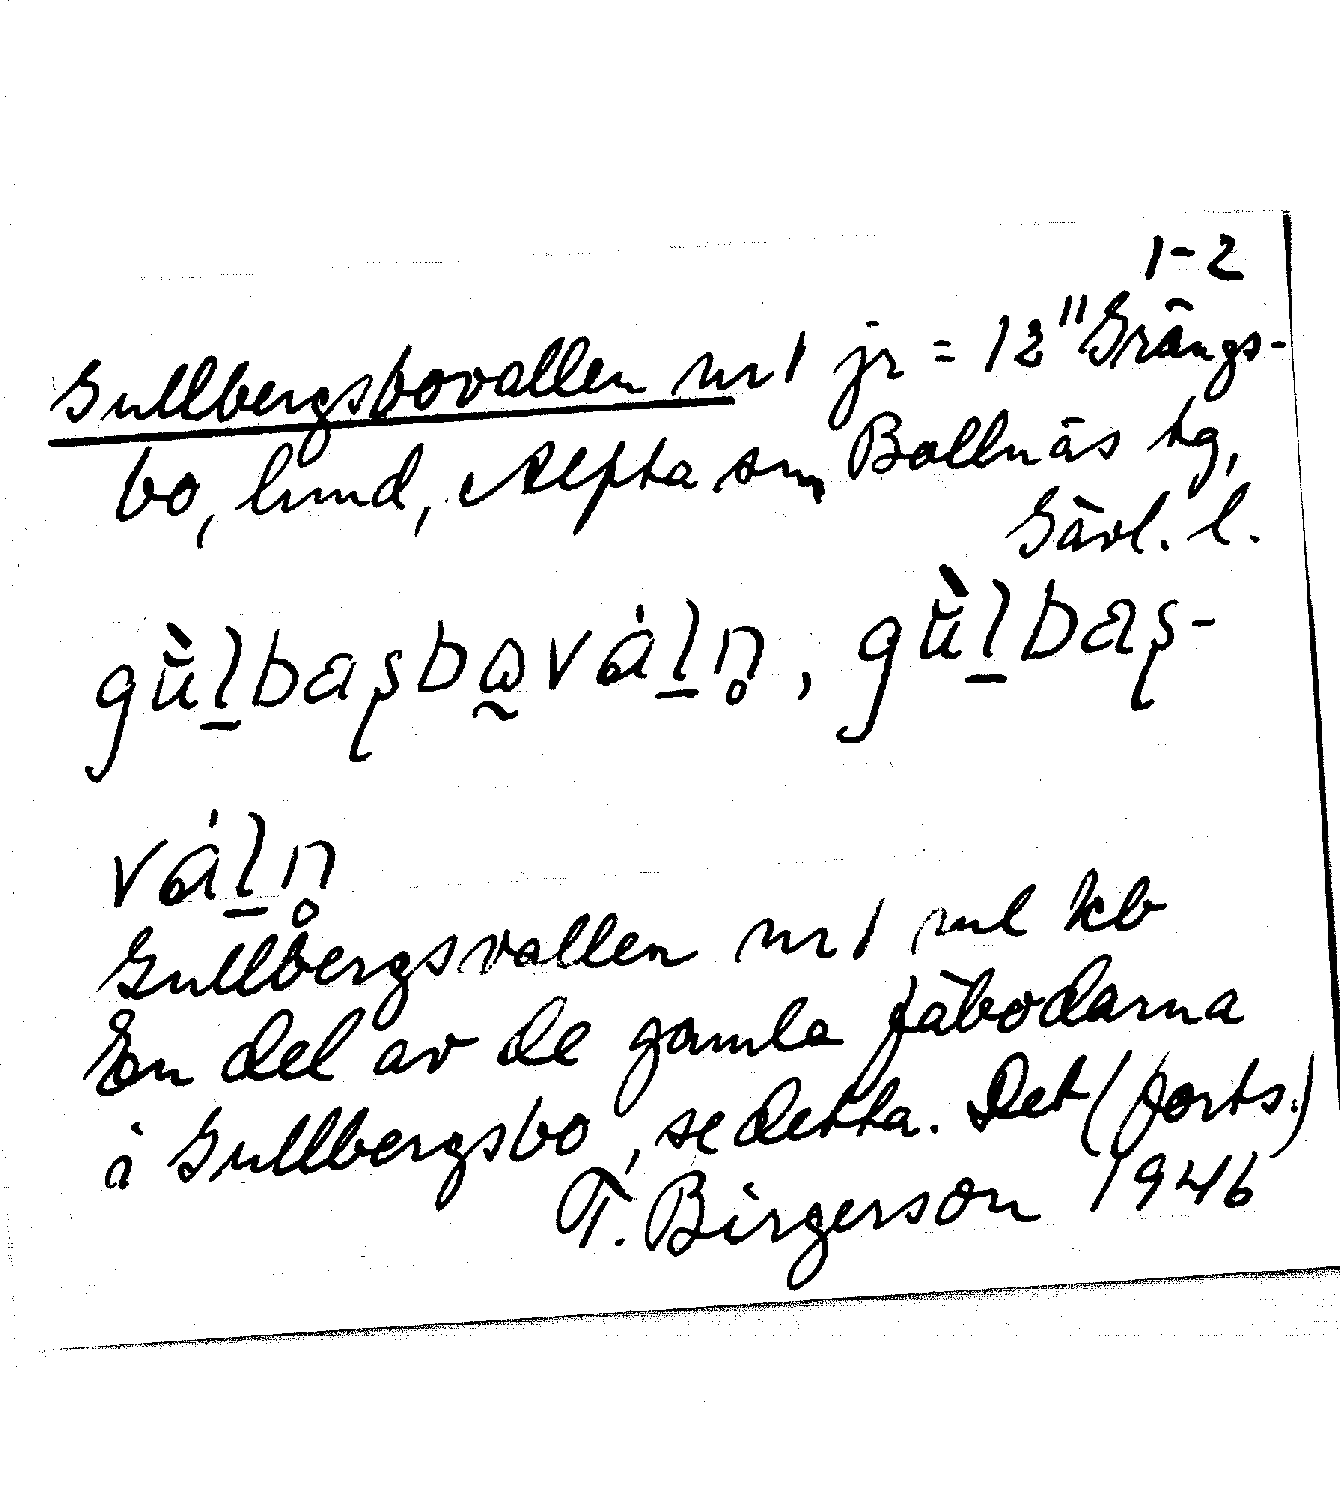 1-2
Gullbergsbovallen nr 1 jr = 12" Grängs-
bo, lund, Alfta sn, Bollnäs tg,
Gävl. l.
gu̇̀l̲basbɷ̰vál̲n̥, gu̇̀l̲bas-
vál̲n̥
Gullbergsvallen nr 1 nul kb
En del av de gamla fäbodarna
i Gullbergsbo, se detta. Det (forts.)
T. Birgerson 1946